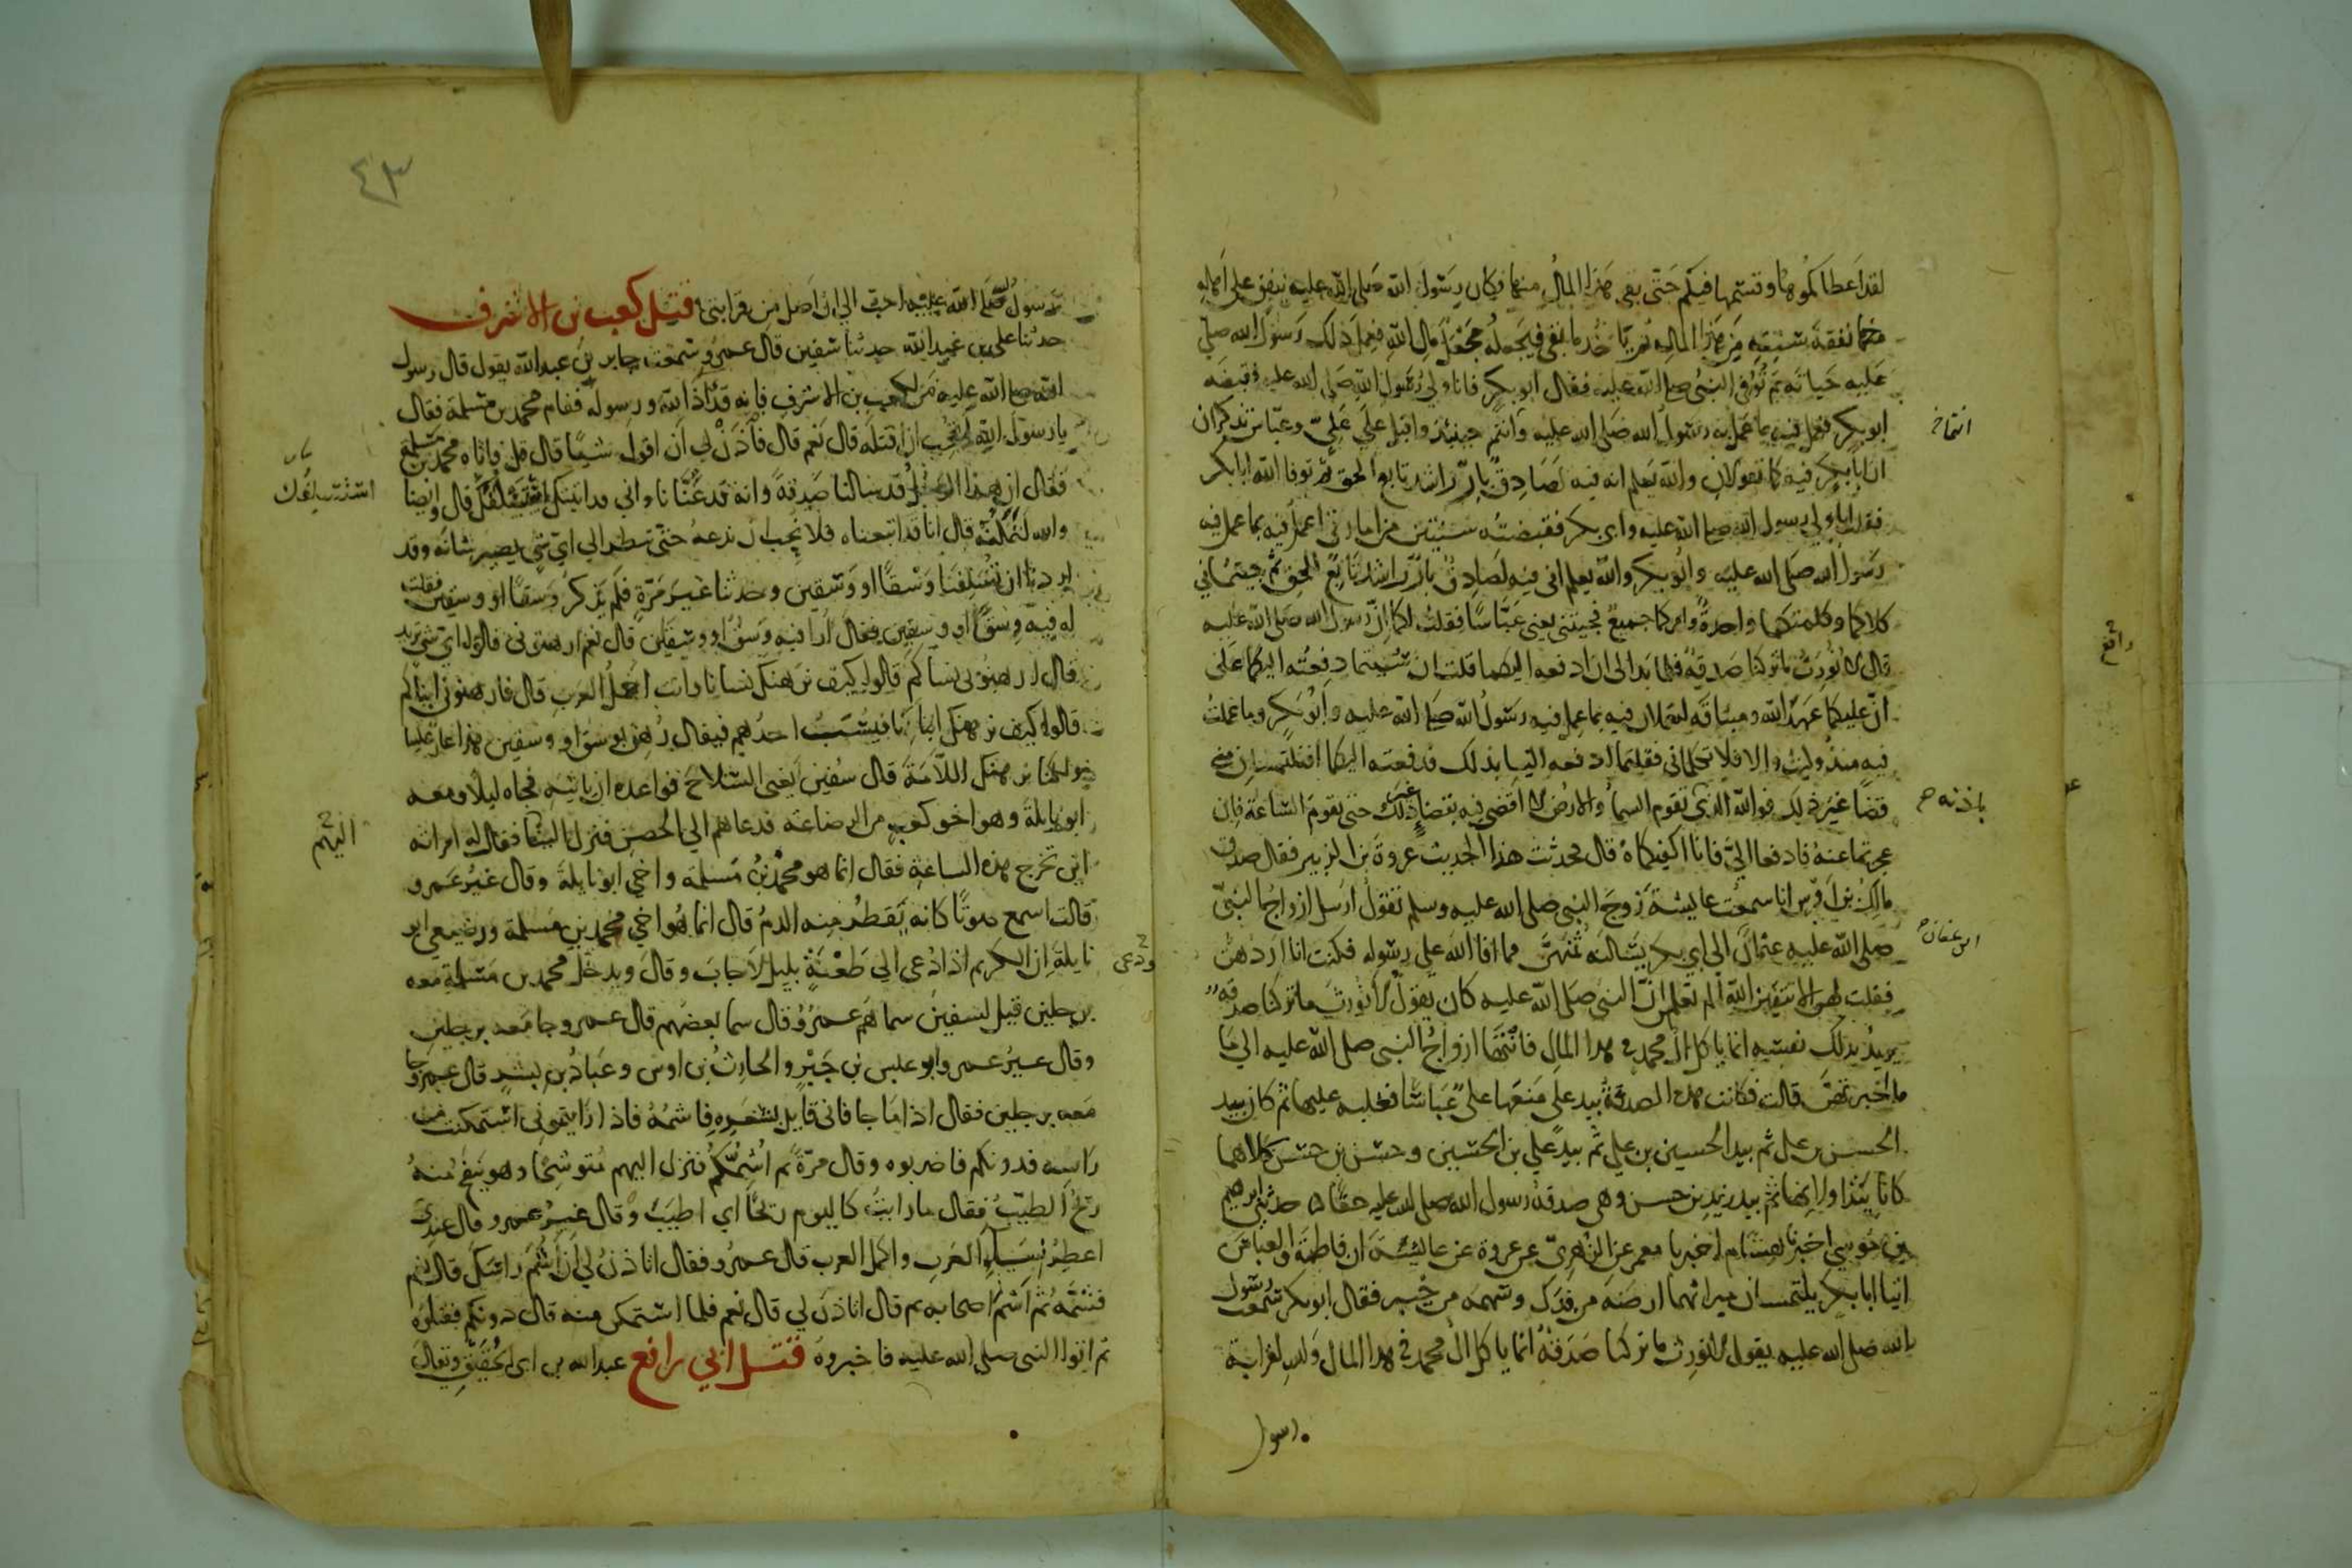 لقد اعطاكموها وقسمها فيكم حتى بقي هذا المال منها فكان رسول الله صلى الله عليه ينفق على اهله
نفقة سنتهم من هذا المال ثم ياخذ ما بقي فيجعله مجعل مال الله فعمل ذلك رسول الله صلى
عليه حياته ثم توفي النبي صلى الله عليه فقال ابو بكر فانا ولي رسول الله صلى الله عليه فقبضه
ابو بكر فعمل فيه بما عمل به رسول الله صلى الله عليه وانتم حينئذ واقبل على علي وعباس تذكران
ان ابا بكر فيه كما تقولان والله يعلم انه فيه لصادق بار راشد تابع الحق ثم توفا الله ابا بكر
فقلت انا ولي رسول الله صلى الله عليه وابي بكر فقبضته سنتين من امارتي اعمل فيه بما عمل فيه
رسول الله صلى الله عليه وابو بكر والله يعلم اني فيه لصادق بار راشد تابع للحق ثم جئتماني
كلاكما وكلمتكما واحدة وامركما جميع فجئتني يعني عباسا فقلت لكما ان رسول الله صلى الله عليه
قال لا نورث ما تركنا صدقة فلما بدا لي ان ادفعه اليكما قلت ان شئتما دفعته اليكما على
ان عليكما عهد الله وميثاقه لتعملان فيه بما عمل فيه رسول الله صلى الله عليه وابو بكر وما عملت
فيه منذ وليت والا فلا تكلماني فقلتما ادفعه الينا بذلك فدفعته اليكما افتلتمسان مني
قضا غير ذلك فوالله الذي تقوم السما والارض لا اقضي فيه بقضا غير ذلك حتى تقوم الساعة فان
عجزتما عنه فادفعا الي فانا اكفيكماه قال فحدثت هذا الحديث عروة بن الزبير فقال صدق
مالك بن اوس انا سمعت عايشة زوج النبي صلى الله عليه وسلم تقول ارسل ازواج النبي
صلى الله عليه عثمان الى ابي بكر يسالنه ثمنهن مما افا الله على رسوله فكنت انا اردهن
فقلت لهن الا تتقين الله الم تعلمن ان النبي صلى الله عليه كان يقول لا نورث ما تركنا صدقة
يريد بذلك نفسه انما ياكل ال محمد في هذا المال فانتهى ازواج النبي صلى الله عليه الى ما
ما اخبرتهن قالت فكانت هذه الصدقة بيد على منعها على عباسا فغلبه عليها ثم كان بيد
الحسن بن علي ثم بيد الحسين بن علي ثم بيد علي بن الحسين وحسن بن حسن كلاهما
كانا يتداولانها ثم بيد زيد بن حسن وهي صدقة رسول الله صلى الله عليه حقا حدثني ابرهيم
بن موسي اخبرنا هشام اخبرنا معمر عن الزهري عن عروة عن عايشة ان فاطمة والعباس
اتيا ابا بكر يلتمسان ميراثهما ارضه من فدك وسهمه من خيبر فقال ابو بكر سمعت رسول
الله صلى الله عليه يقول لا نورث ما تركنا صدقة انما ياكل ال محمد في هذا المال والله لقرابة
رسول
انتما
باذنه
ابن عفان
رافع
٤٣
رسول الله صلى الله عليه احب الي ان اصل من قرابتي قتل كعب بن الاشرف
حدثنا علي بن عبد الله حدثنا سفين قال عمرو سمعت جابر بن عبد الله يقول قال رسول
الله صلى الله عليه من لكعب بن الاشرف فانه قد اذا الله ورسوله فقام محمد بن مسلمة فقال
يا رسول الله اتحب ان اقتله قال نعم قال فاذن لي ان اقول شيا قال قل فاتاه محمد بن مسلمة
فقال ان هذا الرجل قد سالنا صدقة وانه قد عنانا واني قد اتيتك استسلفك قال وايضا
والله لتملنه قال انا قد اتبعناه فلا نحب ان ندعه حتى ننظر الى اي شي يصير شانه وقد
اردنا ان تسلفنا وسقا او وسقين وحدثنا غير مرة فلم يذكر وسقا او وسقين فقلت
له فيه وسقا او وسقين فقال ارا فيه وسقا او وسقين قال نعم ارهنوني قالوا اي شي تريد
قال ارهنوني نساكم قالوا كيف نرهنك نسانا وانت اجمل العرب قال فارهنوني ابناكم
قالوا كيف نرهنك ابنانا فيسب احدهم فيقال رهن بوسق او وسقين هذا عار علينا
ولكنا نرهنك اللامة قال سفين يعني السلاح فواعده ان ياتيه فجاه ليلا ومعه
ابو نايلة وهو اخو كعب من الرضاعة فدعاهم الى الحصن فنزل اليها فقال له امراته
اين تخرج هذه الساعة فقال انما هو محمد بن مسلمة واخي ابو نايلة وقال غير عمرو
قالت اسمع صوتا كانه يقطر منه الدم قال انما هو اخي محمد بن مسلمة ورضيعي ابو
نايلة ان الكريم اذا دعي الى طعنة بليل لاجاب وقال ويدخل محمد بن مسلمة معه
برجلين قيل لسفين سماهم عمرو قال سما بعضهم قال عمرو جا معه برجلين
وقال غير عمرو ابو عبس بن جبر والحارث بن اوس وعباد بن بشر قال عمرو وجا
معه برجلين فقال اذا ما جا فاني قايل بشعره فاشمه فاذا رايتموني استمكنت من
راسه فدونكم فاضربوه وقال مرة ثم اشمكم فنزل اليهم متوشحا وهو ينفح منه
ريح الطيب فقال ما رايت كاليوم ريحا اي اطيب وقال غير عمرو قال عندي
اعطر نساء العرب واكمل العرب قال عمرو فقال اتاذن لي ان اشم راسك قال نعم
فشمه ثم اشم اصحابه ثم قال اتاذن لي قال نعم فلما استمكن منه قال دونكم فقتلوه
ثم اتوا النبي صلى الله عليه فاخبروه قتل ابي رافع عبد الله بن ابي الحقيق ويقال
استسلفك
اليهم
ودعى